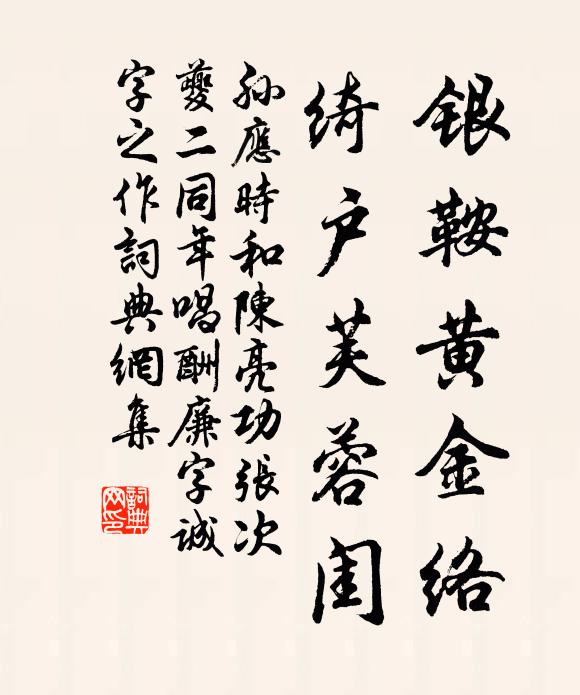 银鞍黄金络
绮户芙蓉闺
孙應時和陳亮功張次
夔二同年唱酬廉字诚
字之作詞典網集
詞典网印